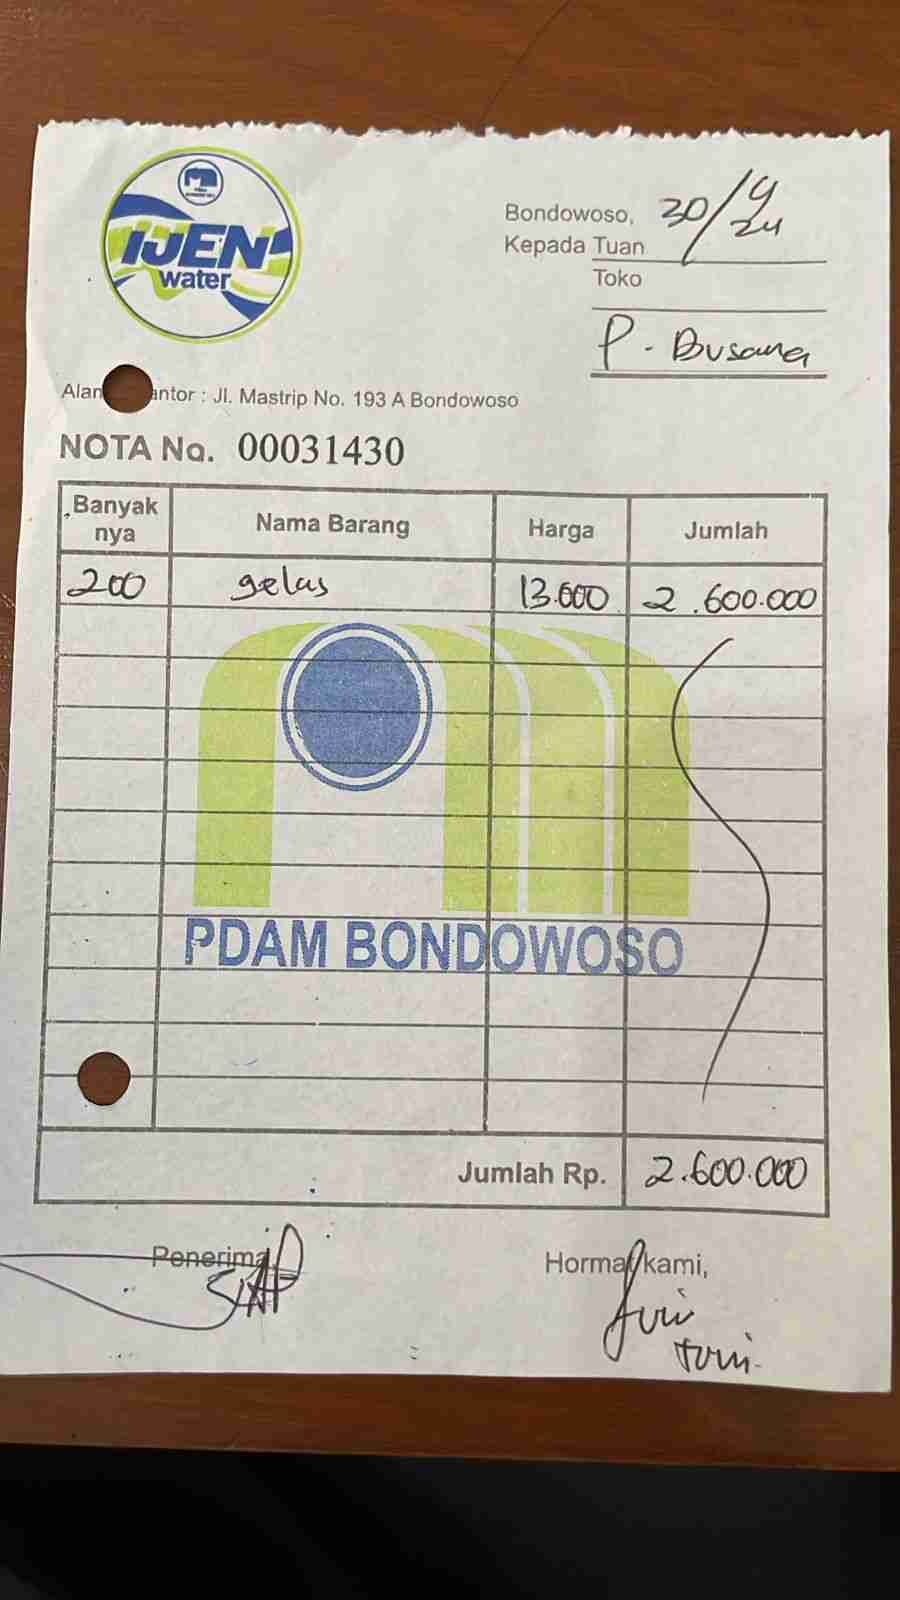 IJEN
water
Bondowoso, 30/4 24
Kepada Tuan
Toko
P. Busana
Alam antor : Jl. Mastrip No. 193 A Bondowoso
NOTA No. 00031430
Banyak nya Nama Barang Harga Jumlah
200 gelas 13.000 2.600.000
PDAM BONDOWOSO
Jumlah Rp. 2.600.000
Penerima Hormat kami,